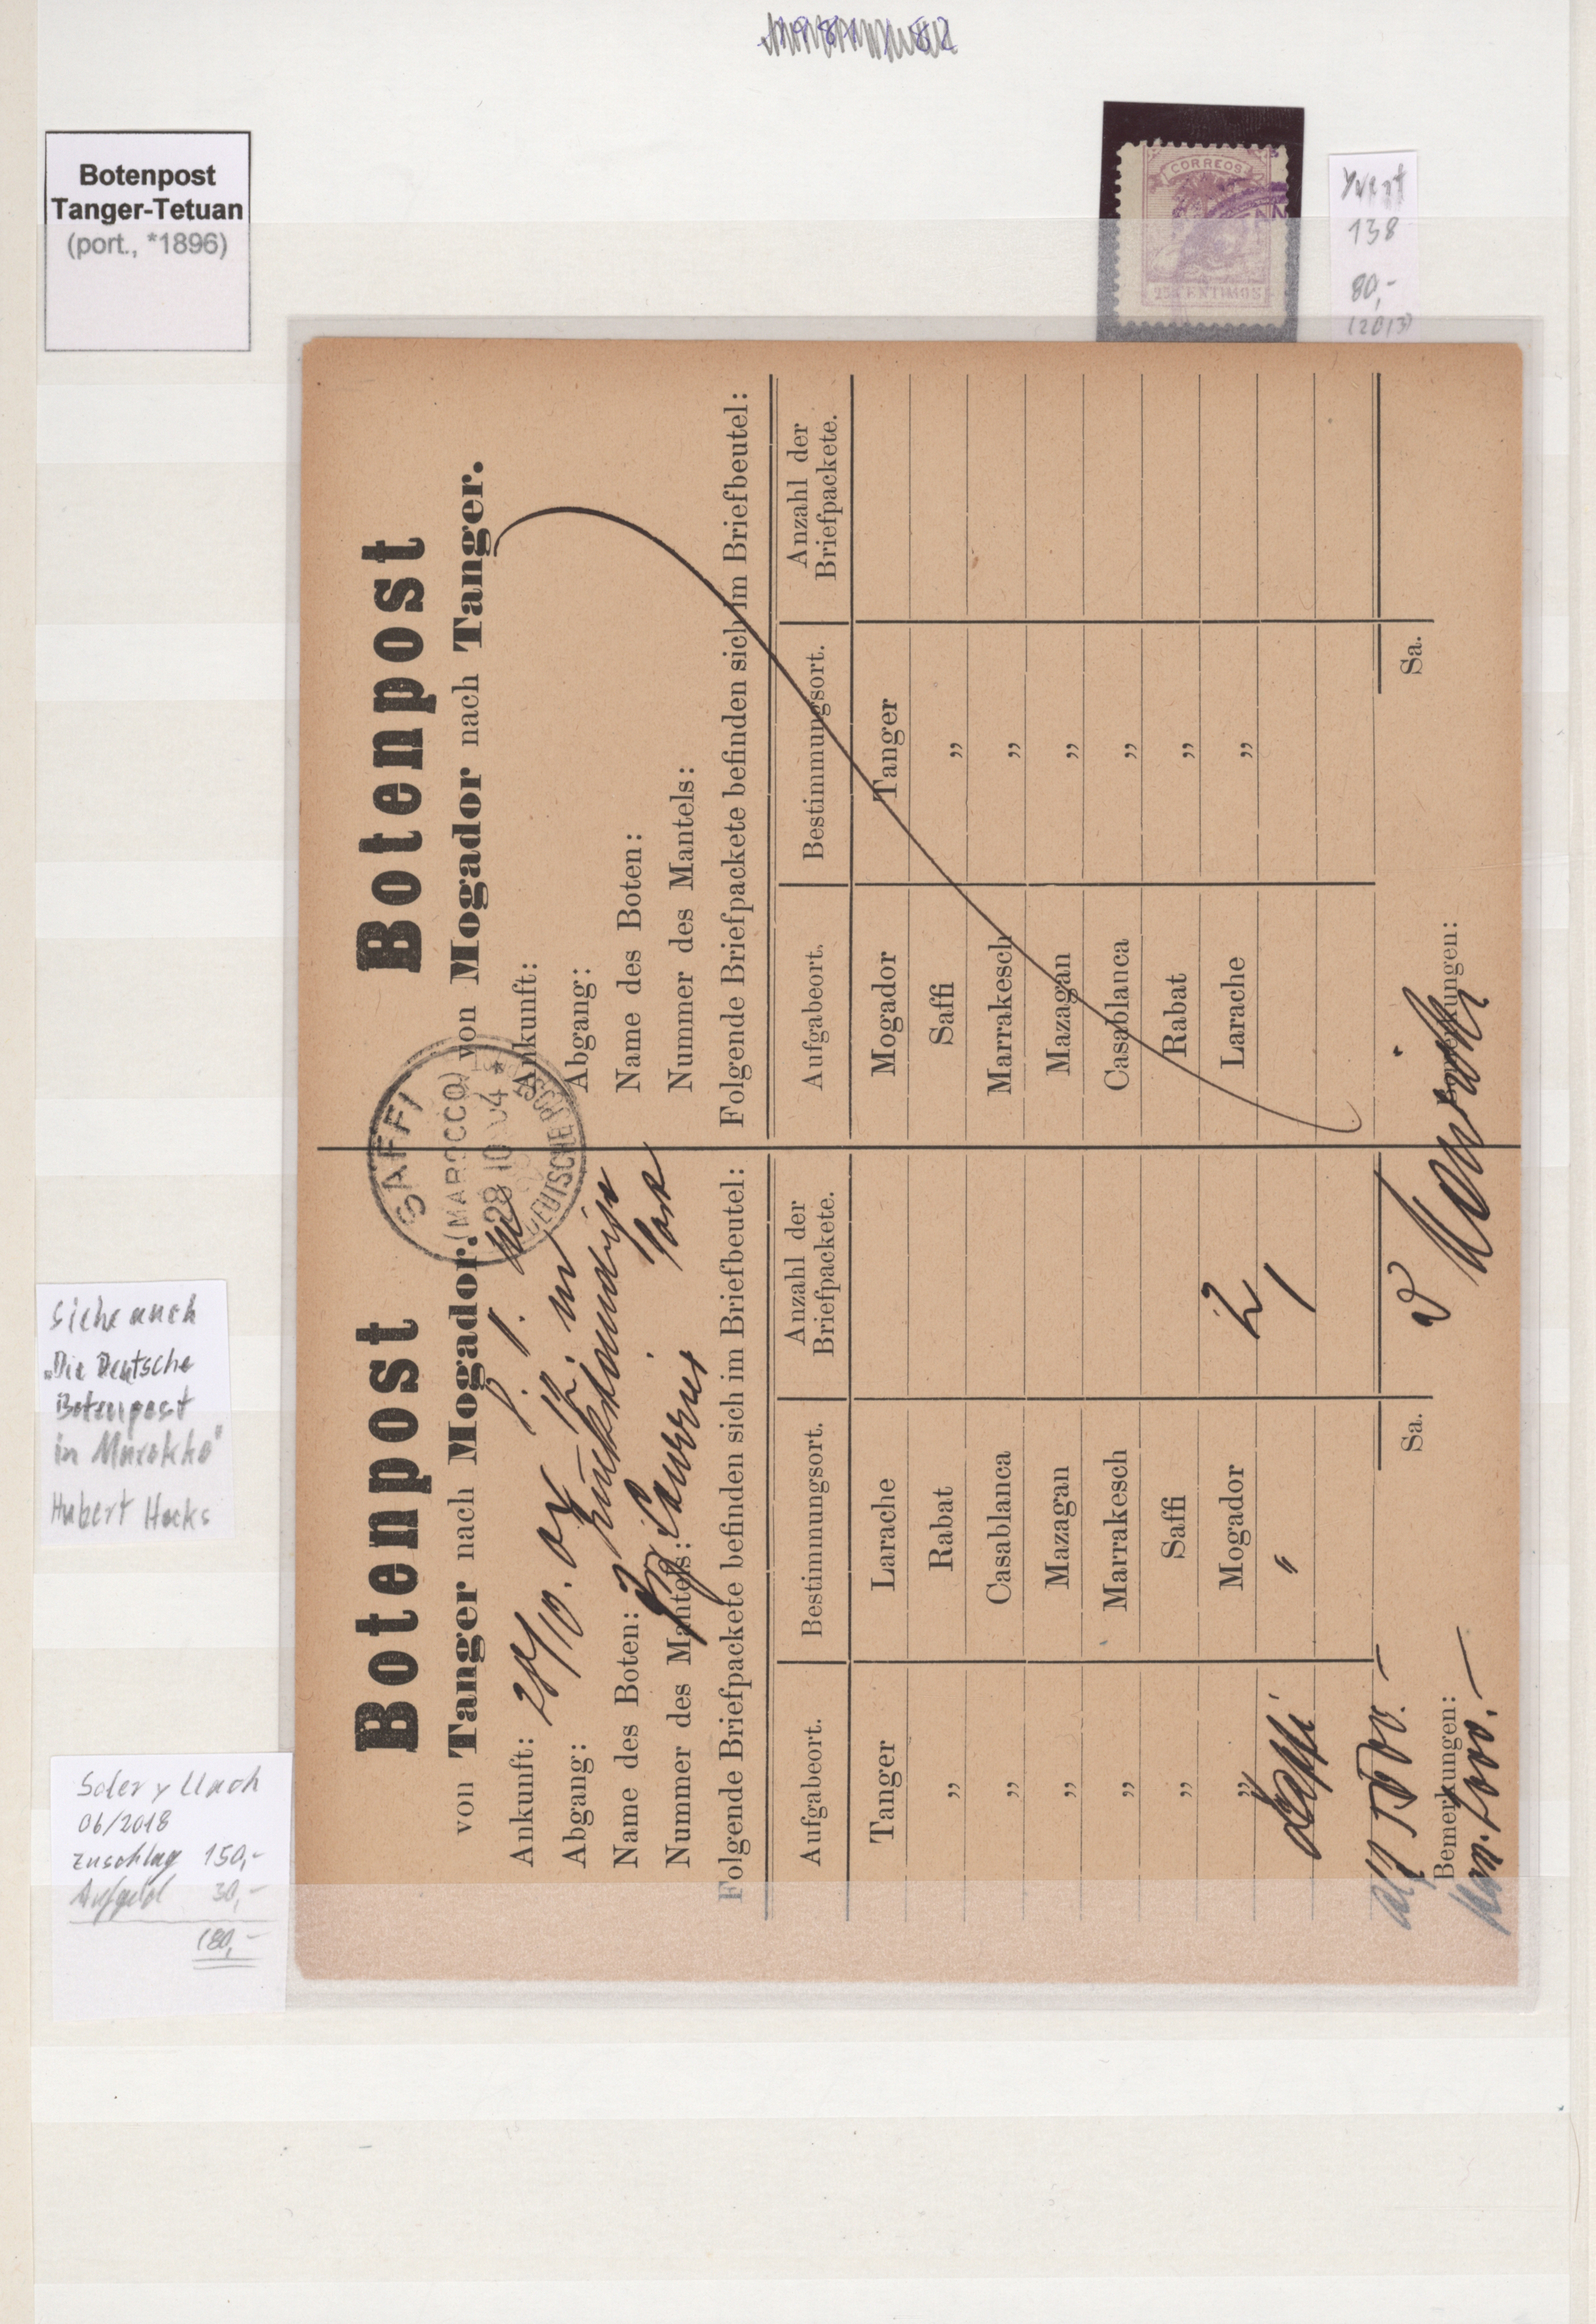 Botenpost
Tanger-Tetuan
(port., *1896)
CORREOS
25 CENTIMOS
Yvert
138
80,-
(2013)
Siehe auch
„Die Deutsche
Botenpost
in Marokko"
Hubert Hocks
Soler y Llach
06/2018
Zuschlag 150,-
Aufgeld 30,-
180,-
Botenpost
von Tanger nach Mogador.
Ankunft: 28/10. 04
Abgang:
Name des Boten:
Nummer des Mantels:
Folgende Briefpackete befinden sich im Briefbeutel:
Aufgabeort. Bestimmungsort. Anzahl der Briefpackete.
Tanger Larache
„ Rabat
„ Casablanca
„ Mazagan
„ Marrakesch
„ Saffi
„ Mogador 2
Saffi " 1
Sa.
Bemerkungen:
SAFFI
(MAROCCO)
28 10 04
* DEUTSCHE POST *
Botenpost
von Mogador nach Tanger.
Ankunft:
Abgang:
Name des Boten:
Nummer des Mantels:
Folgende Briefpackete befinden sich im Briefbeutel:
Aufgabeort. Bestimmungsort. Anzahl der Briefpackete.
Mogador Tanger
Saffi „
Marrakesch „
Mazagan „
Casablanca „
Rabat „
Larache „
Sa.
Bemerkungen: